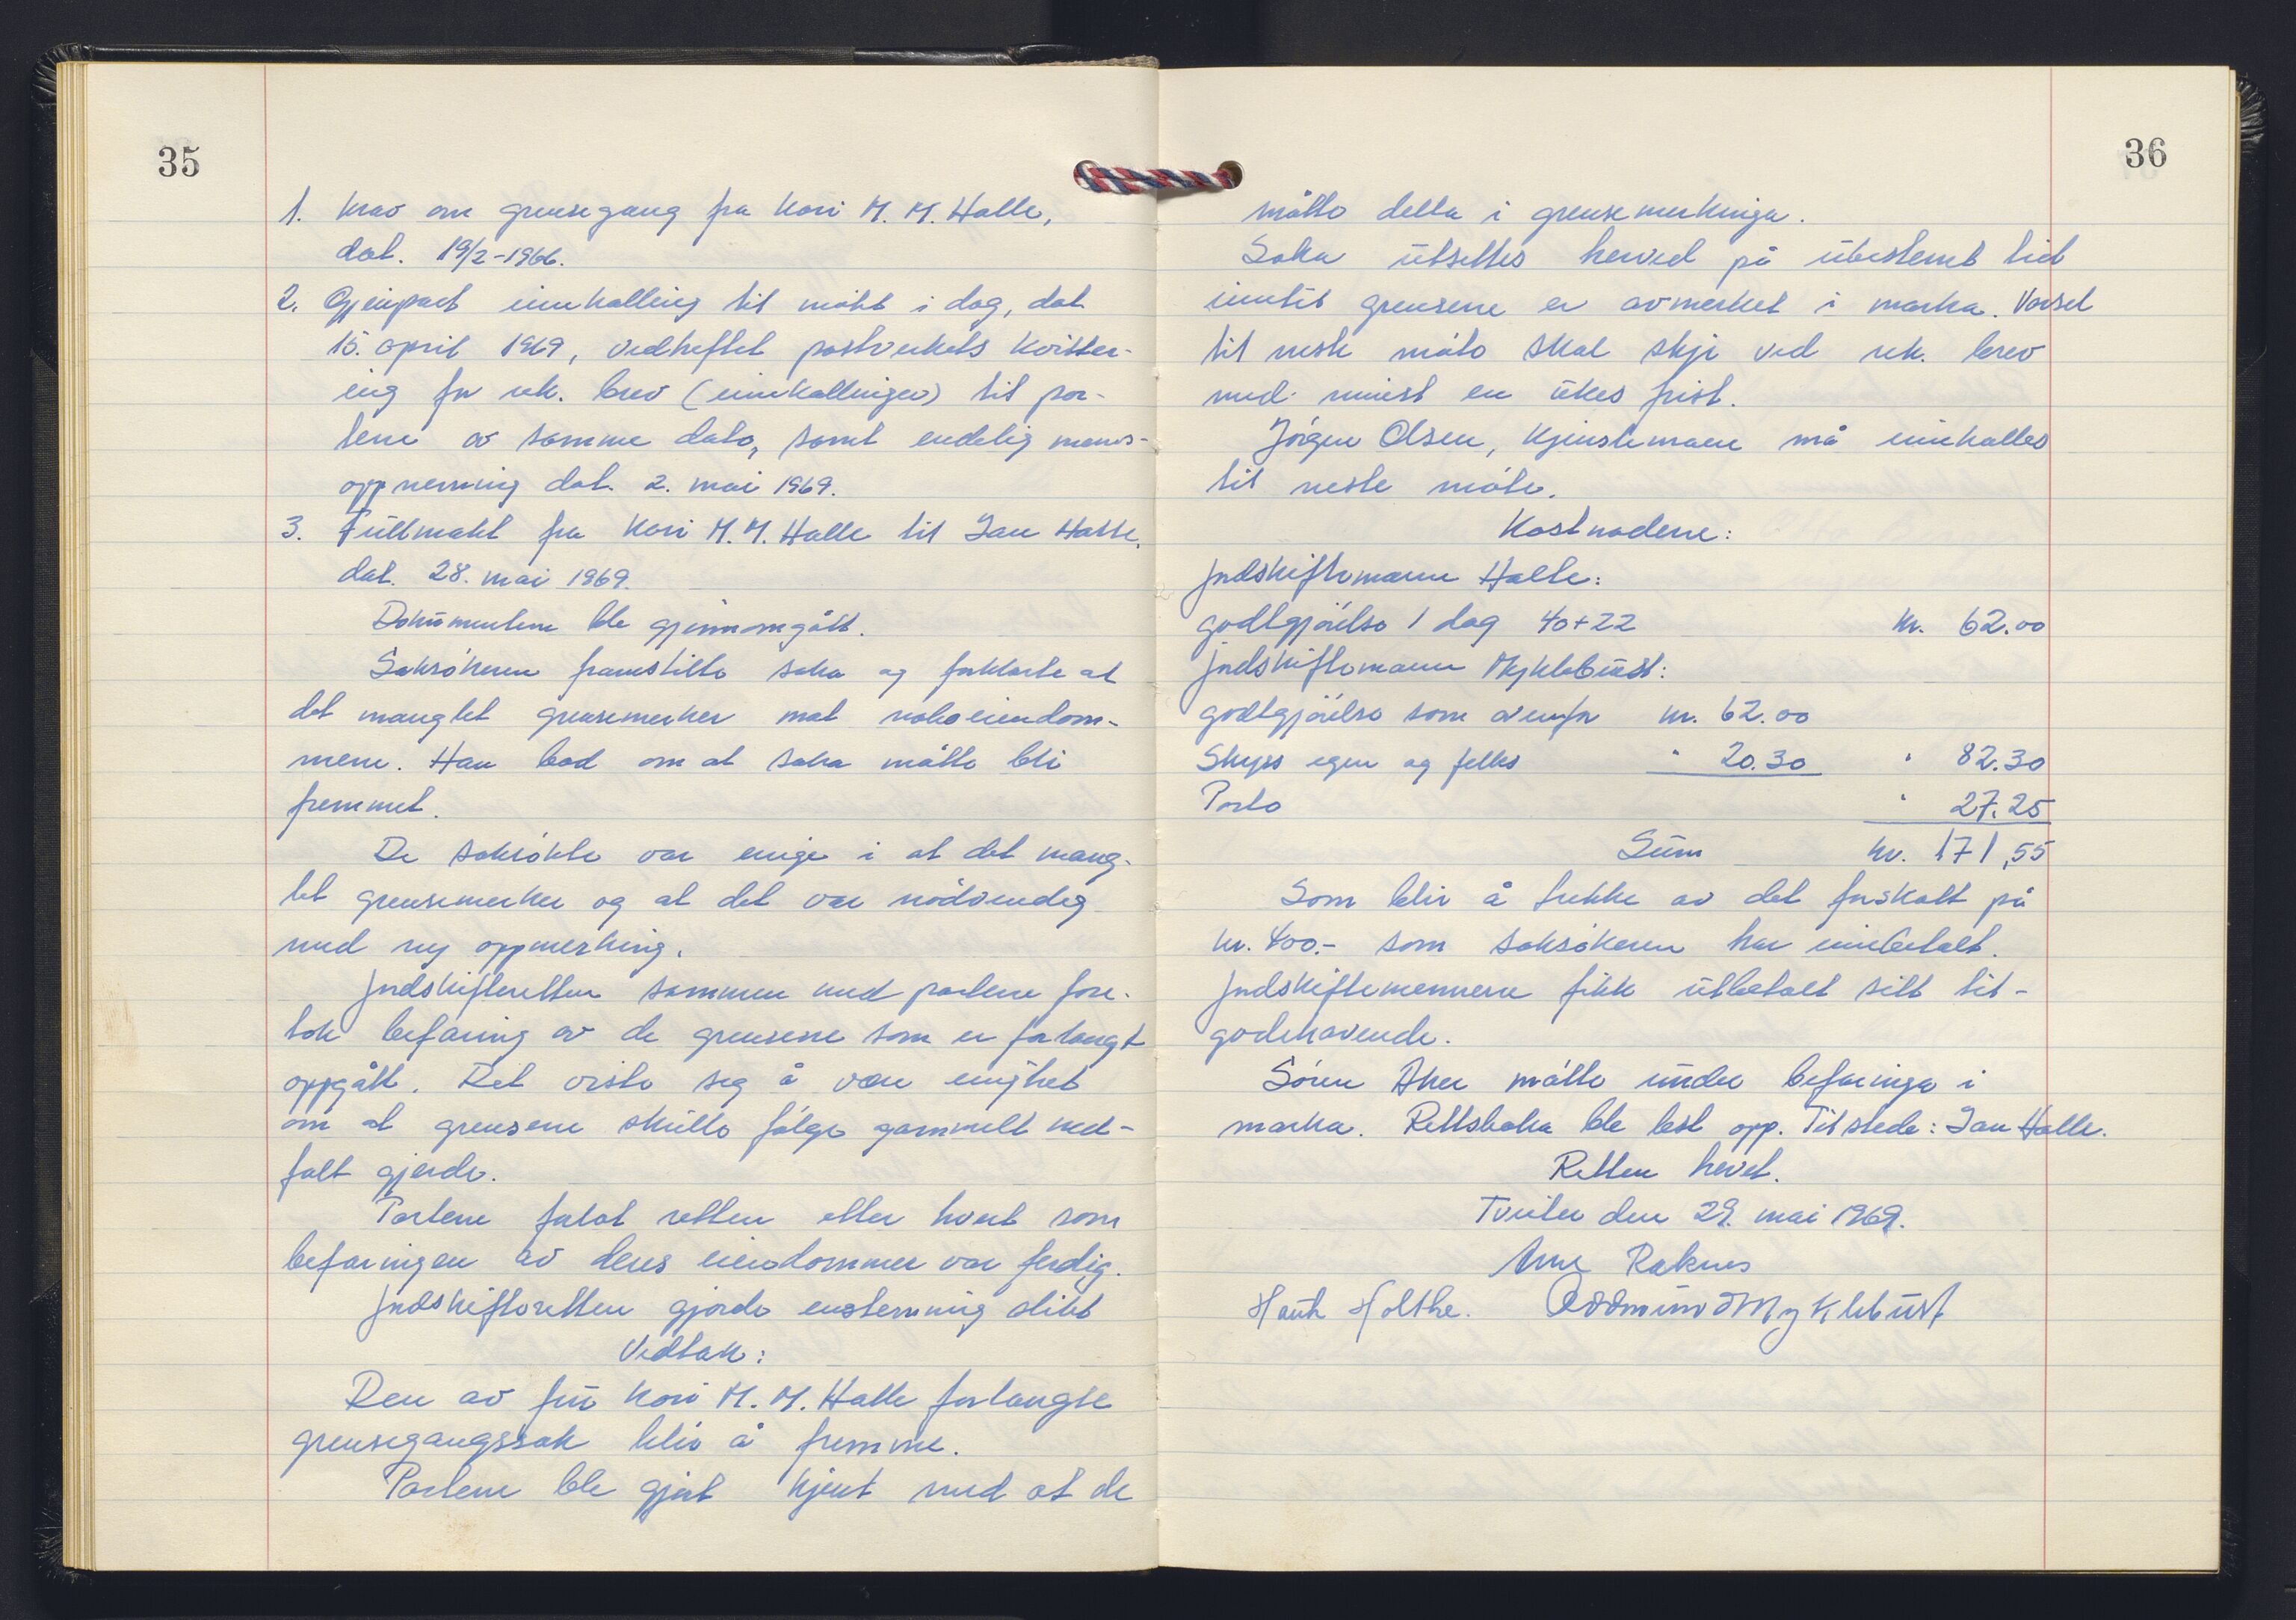 35
1. Krav om grensegang fra Kari M. M. Halle,
dat. 19/2-1966.
2. Gjenpart innkalling til møte i dag, dat
15. april 1969, vedheftet postverkets kvitter-
ing for rek. brev (innkallinger) til par-
tene av samme dato, samt endelig manns-
oppnevning dat. 2. mai 1969.
3. Fullmakt fra Kari M. M. Halle til Jan Halle,
dat. 28. mai 1969.
Dokumentene ble gjennomgått.
Saksøkeren framstilte saka og forklarte at
det manglet grensemerker mot naboeiendom-
mene. Han bad om at saka måtte bli
fremmet.
De saksøkte var enige i at det mang-
let grensemerker og at det var nødvendig
med ny oppmerking.
Jordskifteretten sammen med partene fore-
tok befaring av de grensene som er forlangt
oppgått. Det viste seg å være enighet
om at grensene skulle følge gammelt ned-
falt gjerde.
Partene forlot retten etter hvert som
befaringen av deres eiendommer var ferdig.
Jordskifteretten gjorde enstemmig slikt
Vedtak:
Den av fru Kari M. M. Halle forlangte
grensegangssak blir å fremme.
Partene ble gjort kjent med at de
36
måtte delta i grensemerkinga.
Saka utsettes herved på ubestemt tid
inntil grensene er avmerket i marka. Varsel
til neste møte skal skje ved rek. brev
med minst en ukes frist.
Jørgen Olsen, Kjenstemann må innkalles
til neste møte.
Kostnadene:
Jordskiftemann Halle:
godtgjørelse 1 dag 40+22 kr. 62.00
Jordskiftemann Myklebust:
godtgjørelse som ovenfor kr. 62.00
Skyss egen og felles " 20.30 " 82.30
Porto " 27.25
Sum kr. 171,55
Som blir å trekke av det forskott på
kr. 400.- som saksøkeren har innbetalt.
Jordskiftemennene fikk utbetalt sitt til-
godehavende.
Søren Aker møtte under befaringa i
marka. Rettsboka ble lest opp. Tilstede: Jan Halle.
Retten hevet.
Tveiter den 29. mai 1969.
Arne Raknes
Holthe. Oddmund Myklebust